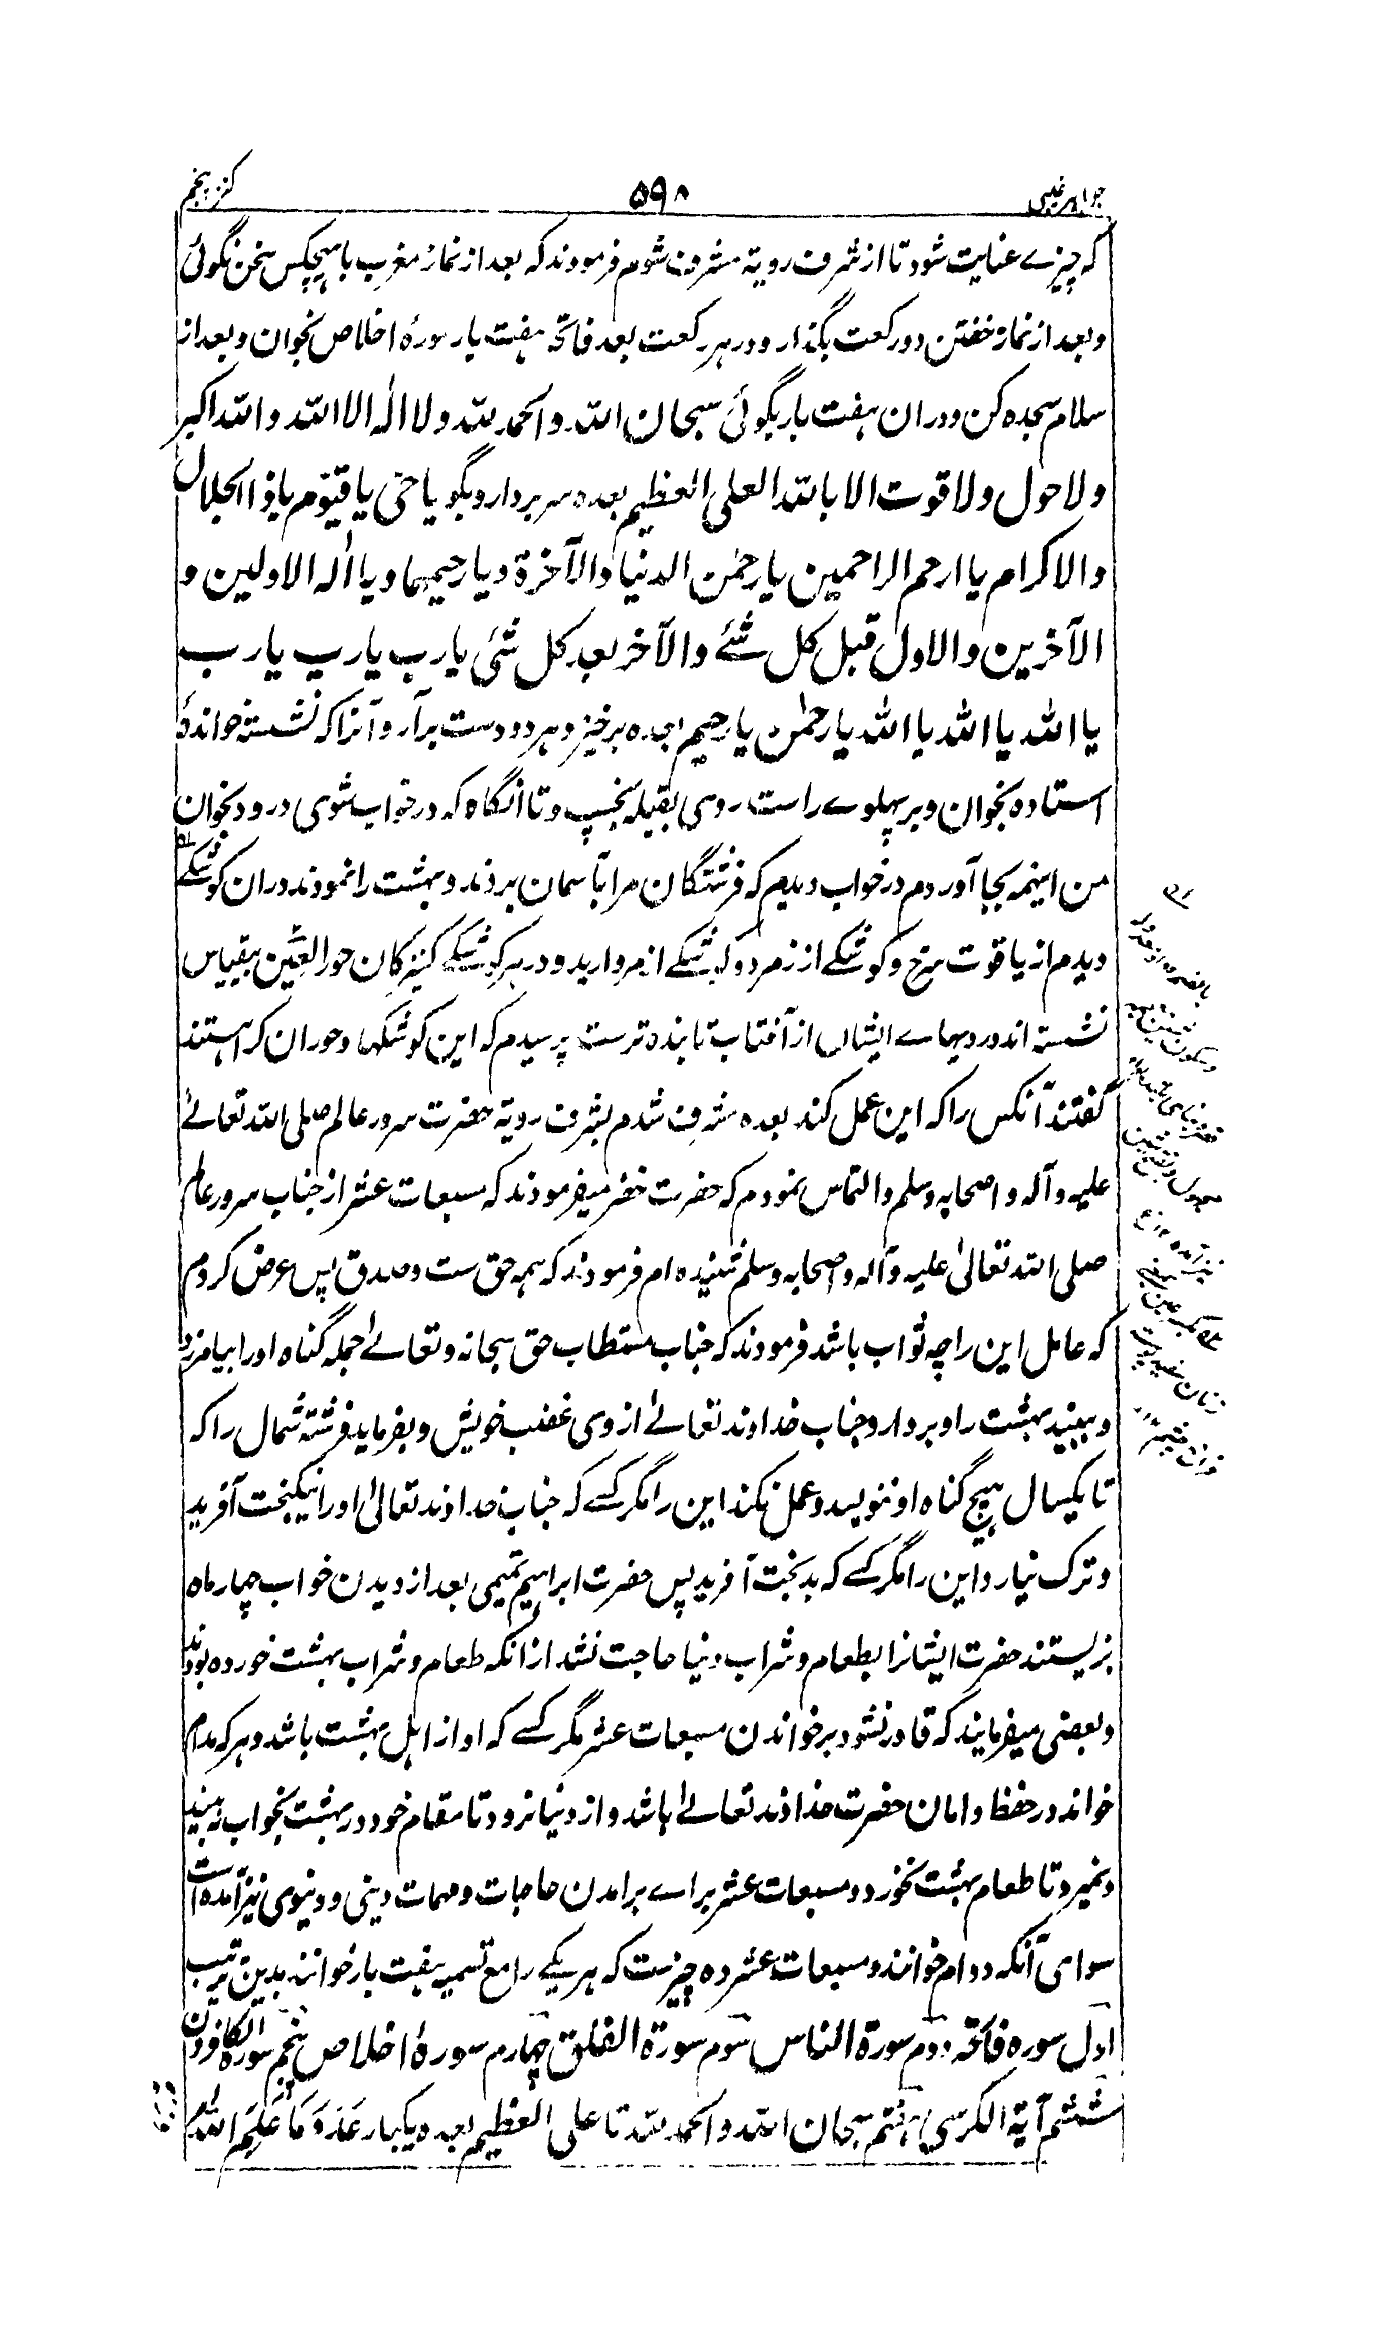 جواهر غیبی
۵۹۸
کنز پنجم
که چیزے عنایت شود تا از شرف رویة مشرف شوم فرمودند که بعد از نماز مغرب با هیچکس سخن نگوئی
و بعد از نماز خفتن دو رکعت بگذار و در هر رکعت بعد فاتحه هفت بار سورۀ اخلاص بخوان و بعد از
سلام سجده کن و دران هفت بار بگوئی سبحان الله والحمد لله ولا اله الا الله والله اکبر
ولا حول ولا قوت الا بالله العلی العظیم بعده سر بردار و بگو یا حی یا قیوم یا ذا الجلال
والاکرام یا ارحم الراحمین یا رحمٰن الدنیا والآخرة و یا رحیمهما و یا اله الاولین و
الآخرین والاول قبل کل شئے والآخر بعد کل شئی یا رب یا رب یا رب
یا الله یا الله یا الله یا رحمٰن یا رحیم بعده برخیز و هر دو دست برآر و آنرا که نشسته خواندۀ
استاده بخوان و بر پهلوے راست روی بقبله بخسپ و تا آنگاه که در خواب شوی درود بخوان
من اینهمه بجا آوردم در خواب دیدم که فرشتگان مرا بآسمان بردند و بهشت را نمودند دران کوشکے
دیدم از یاقوت سرخ و کوشکے از زمرد و کوشکے از مروارید و در هر کوشکے کنیزکان حور العین بیقیاس
نشسته اند و رویهاے ایشاں از آفتاب تابنده ترست پرسیدم که این کوشکها و حوران کرا هستند
گفتند آنکس را که این عمل کند بعده مشرف شدم بشرف رویة حضرت سرور عالم صلی الله تعالےٰ
علیه و آله و اصحابه وسلم والتماس نمودم که حضرت خضر میفرمودند که مسبعات عشر از جناب سرور عالم
صلی الله تعالیٰ علیه وآله واصحابه وسلم شنیده ام فرمودند که همه حق ست و صدق پس عرض کردم
که عامل این را چه ثواب باشد فرمودند که جناب مستطاب حق سبحانه و تعالےٰ جمله گناه او را بیامرزد
و ببیند بهشت را و بردارد جناب خداوند تعالےٰ از وی غضب خویش و بفرماید فرشته شمال را که
تا یکسال هیچ گناه او ننویسد و عمل نکند این را مگر کسے که جناب خداوند تعالیٰ او را نیکبخت آفرید
و ترک نیارد این را مگر کسے که بدبخت آفرید پس حضرت ابراهیم تیمی بعد از دیدن خواب چهار ماه
بزیستند حضرت ایشانرا بطعام و شراب دنیا حاجت نشد از انکه طعام و شراب بهشت خورده بودند
و بعضی میفرمایند که قادر نشود بر خواندن مسبعات عشر مگر کسے که او از اهل بهشت باشد و هر که مدام
خواند در حفظ و امان حضرت خداوند تعالےٰ باشد و از دنیا نرود تا مقام خود در بهشت بخواب نه بیند
و نمیرد تا طعام بهشت نخورد و مسبعات عشر براے برامدن حاجات و مهمات دینی و دنیوی نیز آمده است
سوای آنکه دوام خوانند و مسبعات عشر ده چیزست که هر یکے را مع تسمیه هفت بار خوانند بدین ترتیب
اول سوره فاتحه دوم سورة الناس سوم سورة الفلق چهارم سورۀ اخلاص پنجم سورة الکافرون
ششم آیة الکرسی هفتم سبحان الله والحمد لله تا علی العظیم بعده یکبار عَدَدَ مَا عَلِمَ اللهُ